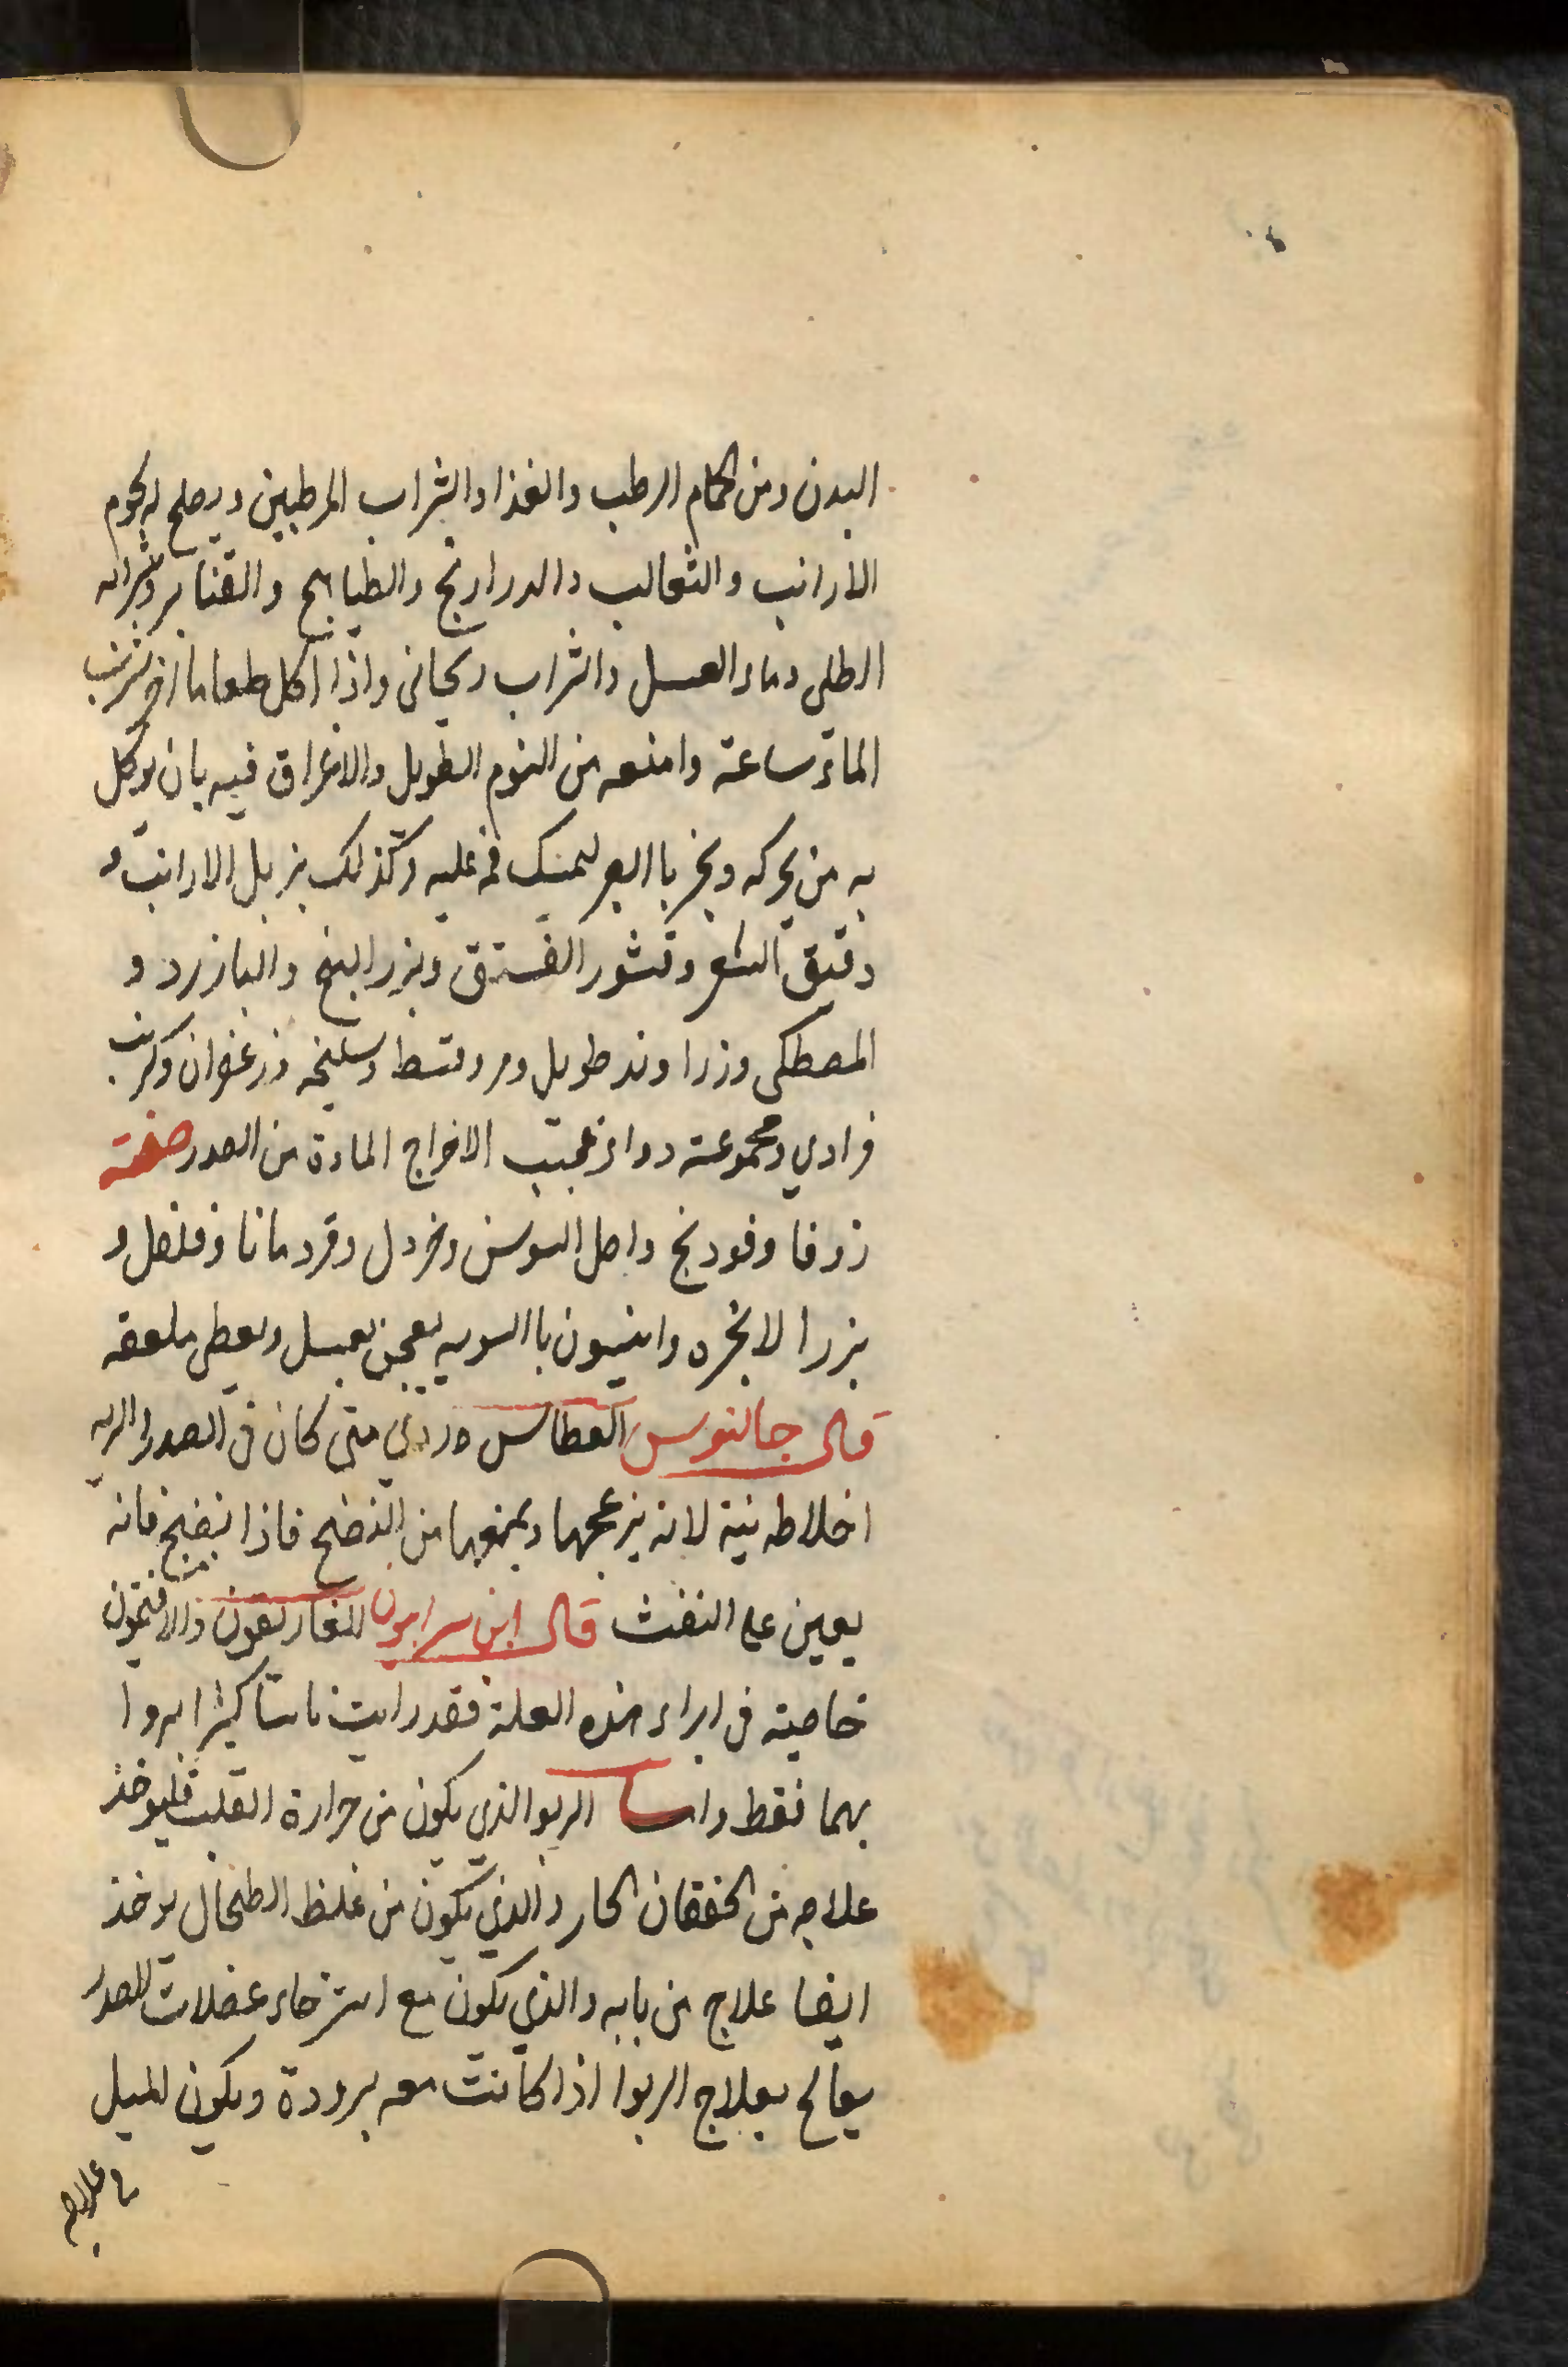 البدن ومن الحمام الرطب والغذا والشراب المرطبين ويصلح له لحوم
الارانب والثعالب والدرارنج والطيابج والقنابر وشرابه
الطلى وماء العسل والشراب ريحانى واذا اكل طعاما اخر شرب
الماء ساعة وامنعه من النوم الطويل والاغراق فيه بان يوكل
به من يحركه وبخر باالبعر ليمسك فمه عليه وكذلك بزبل الارانب و
دقيق الشعر وقشور الفستق وبزر البنج والبازرد و
المصطكى وزراوند طويل ومر وقسط وسليخه وزعفران وكرنب
فرادي ومجموعة دواء عجيب الاخراج المادة من الصدر صفته
زوفا وفودنج واصل السوسن وخردل وقردمانا وفلفل و
بزر الانجره وانيسون باالسويه يعجن بعسل ويعطى ملعقه
قال جالنوس العطاس ردي متى كان فى الصدر والريه
اخلاطه نية لانه يزعجها ويمنعها من النضج فاذا نضج فانه
يعين على النفث قال ابن سرابيون للغاريقون والافتمون
خاصيته فى ابراء هذه العلة فقد رايت ناسا كثيرا بروا
بهما فقط واما الربو الذي يكون من حرارة القلب فليوخذ
علاجه من الخفقان الحار والذي يكون من غلظ الطحال يوخذ
ايضا علاج من بابه والذي يكون مع استرخاء عضلات الصدر
يعالج بعلاج الربوا اذا كانت معه برودة ويكون الميل
علاجه